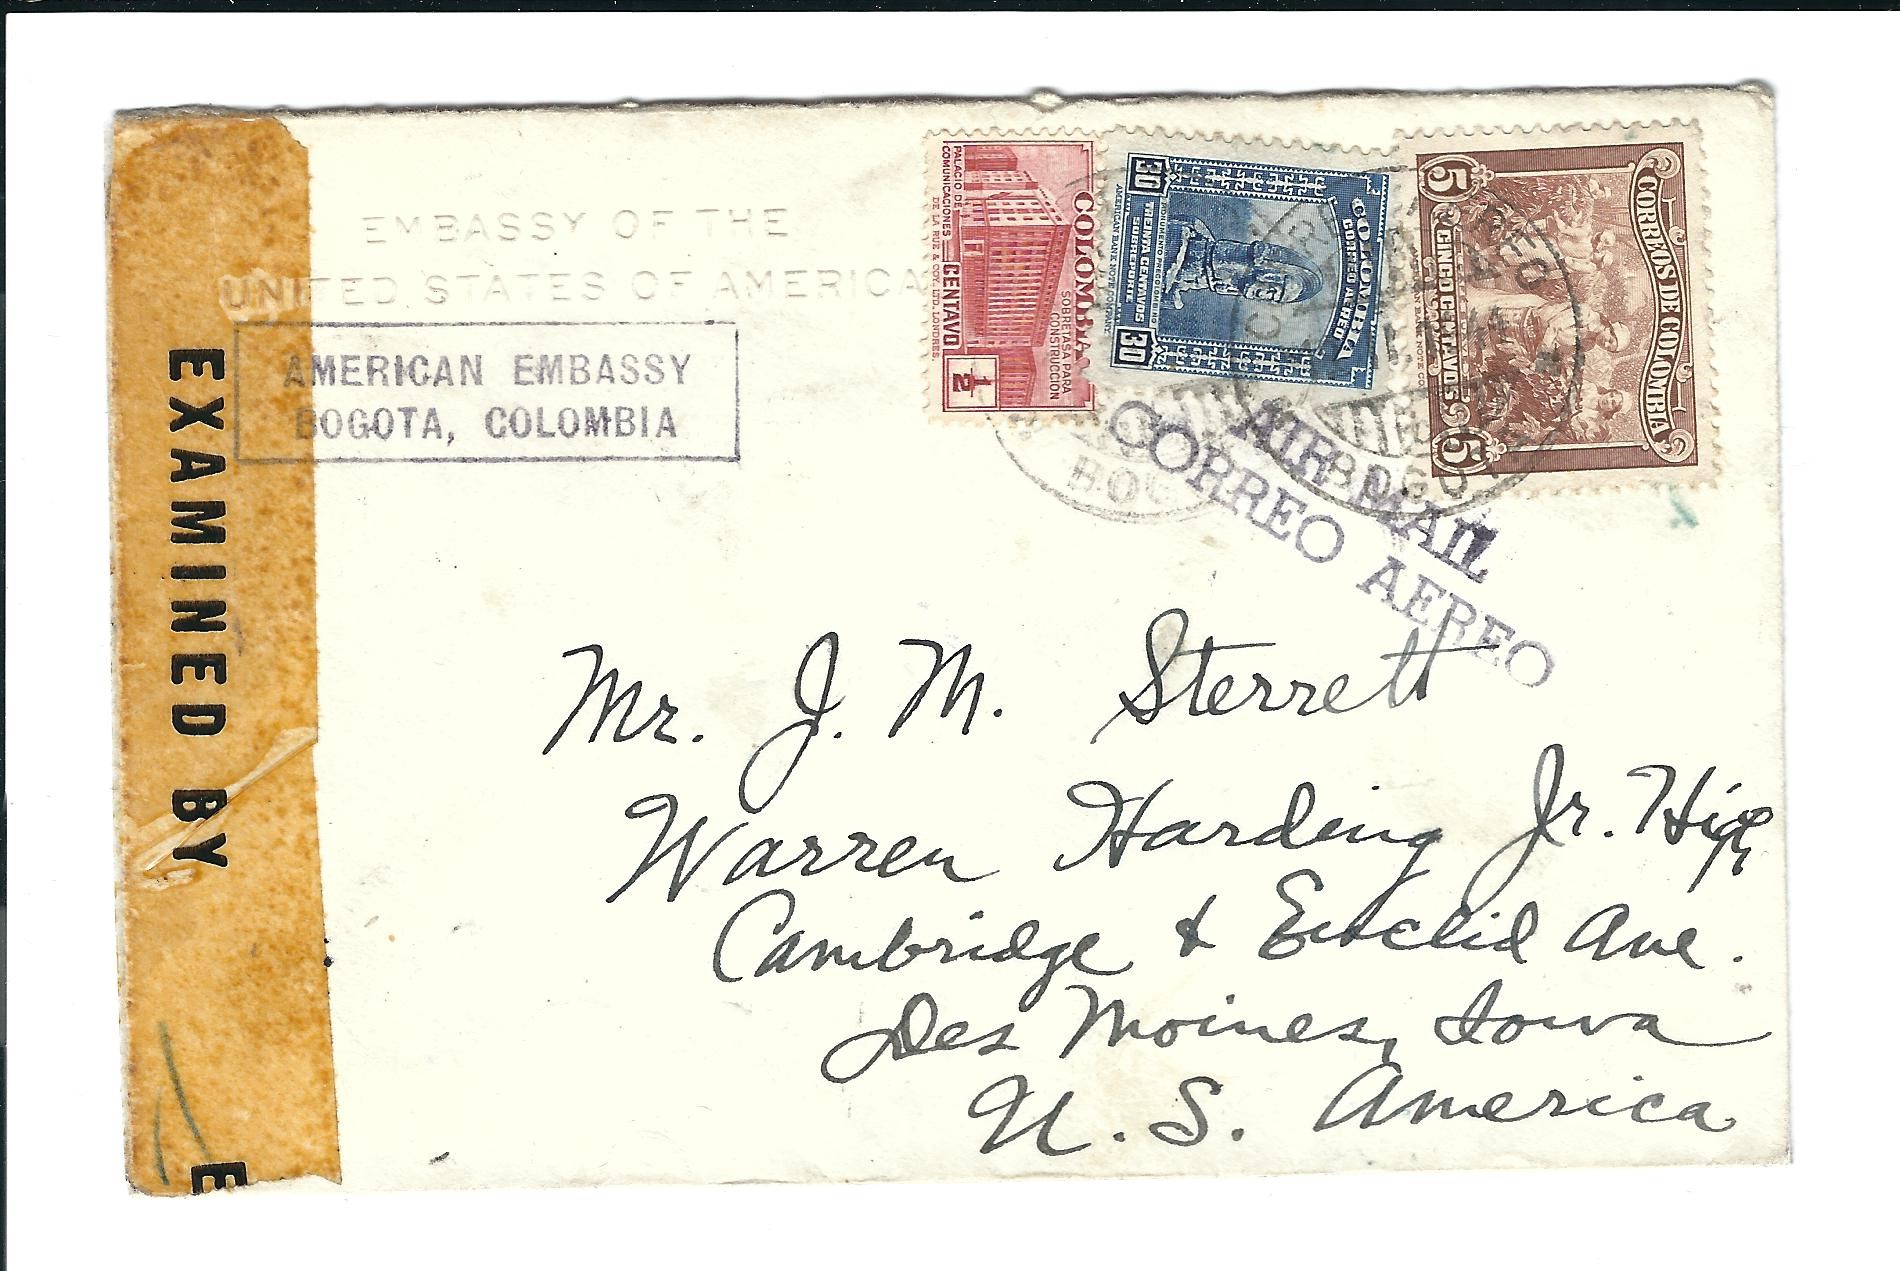 EMBASSY OF THE
UNITED STATES OF AMERICA
AMERICAN EMBASSY
BOGOTA, COLOMBIA
EXAMINED BY
E
PALACIO DE
COMUNICACIONES
DE LA RUE & COY. LTD. LONDRES.
CENTAVO
1/2
SOBRETASA PARA
CONSTRUCCION
COLOMBIA
30 30
AMERICAN BANK NOTE COMPANY
TRENTA CENTAVOS
SOBREPORTE
MONUMENTO PRECOLOMBINO
CORREO AEREO
COLOMBIA
5 5
CINCO CENTAVOS
CORREOS DE COLOMBIA
AIR MAIL
CORREO AEREO
Mr. J. M. Sterrett
Warren Harding Jr. High
Cambridge & Euclid Ave.
Des Moines, Iowa
U. S. America